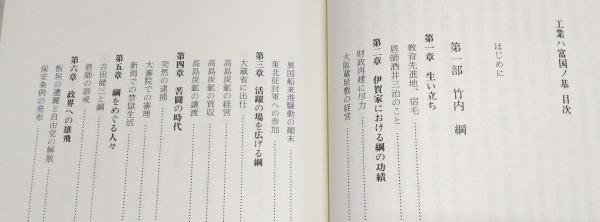 工業ハ富国ノ基 目次
はじめに
第一部 竹内 綱
第一章 生い立ち
教育先進地、宿毛
恩師酒井三治のこと
第二章 伊賀家における綱の功績
財政再建に尽力
大阪蔵屋敷の経営
異国船来港騒動の顚末
東北征討軍への参加
第三章 活躍の場を広げる綱
大蔵省に出仕
高島炭鉱の経営
高島炭鉱の買収
高島炭鉱の譲渡
第四章 苦闘の時代
突然の逮捕
大審院での審理
新潟での禁獄生活
第五章 綱をめぐる人々
吉田健三と綱
恩師の訓戒
第六章 政界への雄飛
板垣の遭難と自由党の解散
保安条例の発布